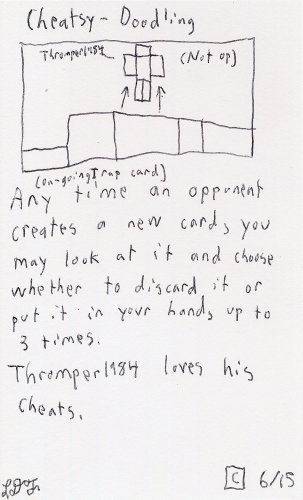 Cheatsy - Doodling
Thromper1984
(Not op)
(on-going Trap card)
Any time an opponent
creates a new card, you
may look at it and choose
whether to discard it or
put it in your hand, up to
3 times.
Thromper1984 loves his
cheats.
C 6/15